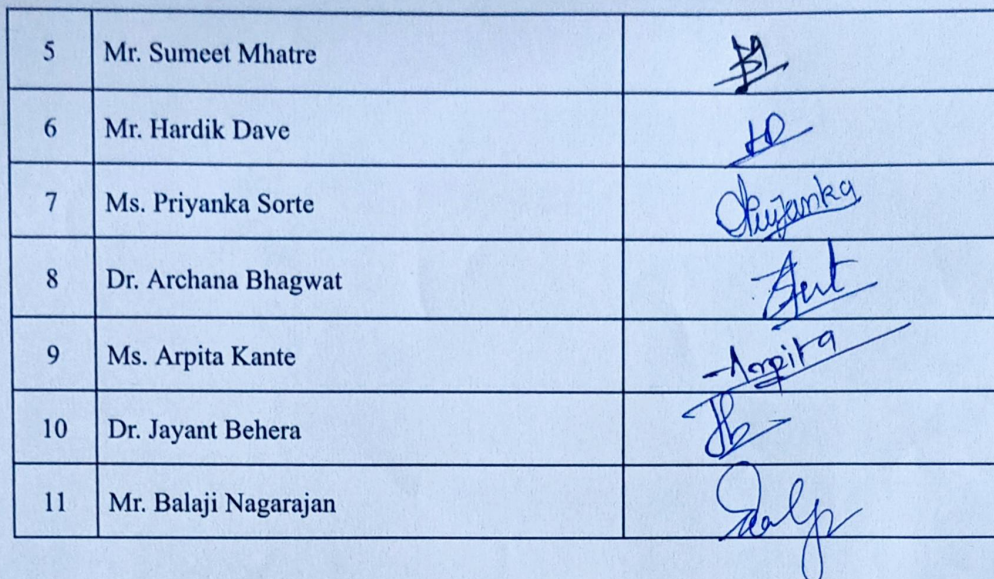 5 Mr. Sumeet Mhatre
6 Mr. Hardik Dave
7 Ms. Priyanka Sorte Priyanka
8 Dr. Archana Bhagwat
9 Ms. Arpita Kante Arpita
10 Dr. Jayant Behera
11 Mr. Balaji Nagarajan